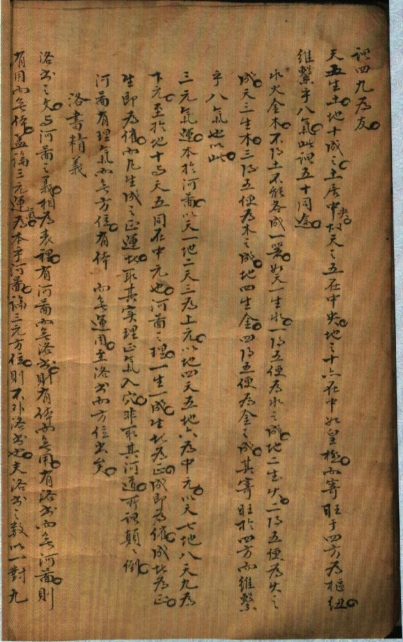 謂四九為友
天五生土地十成之土居中央故天之五在中央地之十亦在中如皇極而寄旺于四方為樞紐
維繫乎八氣此謂五十同途
水火金木不得土不能各成一器如天一生水一得五便為水之成地二生火二得五便為火之
成天三生木三得五便為木之成地四生金四得五便為金之成其寄旺於四方而維繫
乎八氣也以此
三元氣運本於河圖以天一地二天三為上元以地四天五地六為中元以天七地八天九為
下元至於地十與天五同在中元也河圖之理一生一成生者為正成即為催成者為正
生即為催而凡生成之正運者取其實理正氣入穴非取其河道所謂顛之倒
河圖有理氣而無方位有体而無運用至洛書而方位出矣
洛書精義
洛書之文与河圖之義相為表裡有河圖而無洛書則有体而無用有洛書而無河圖則
有用而無体蓋論三元運氣為本乎河圖論三元方位則不外洛書也夫洛書之數以一對九